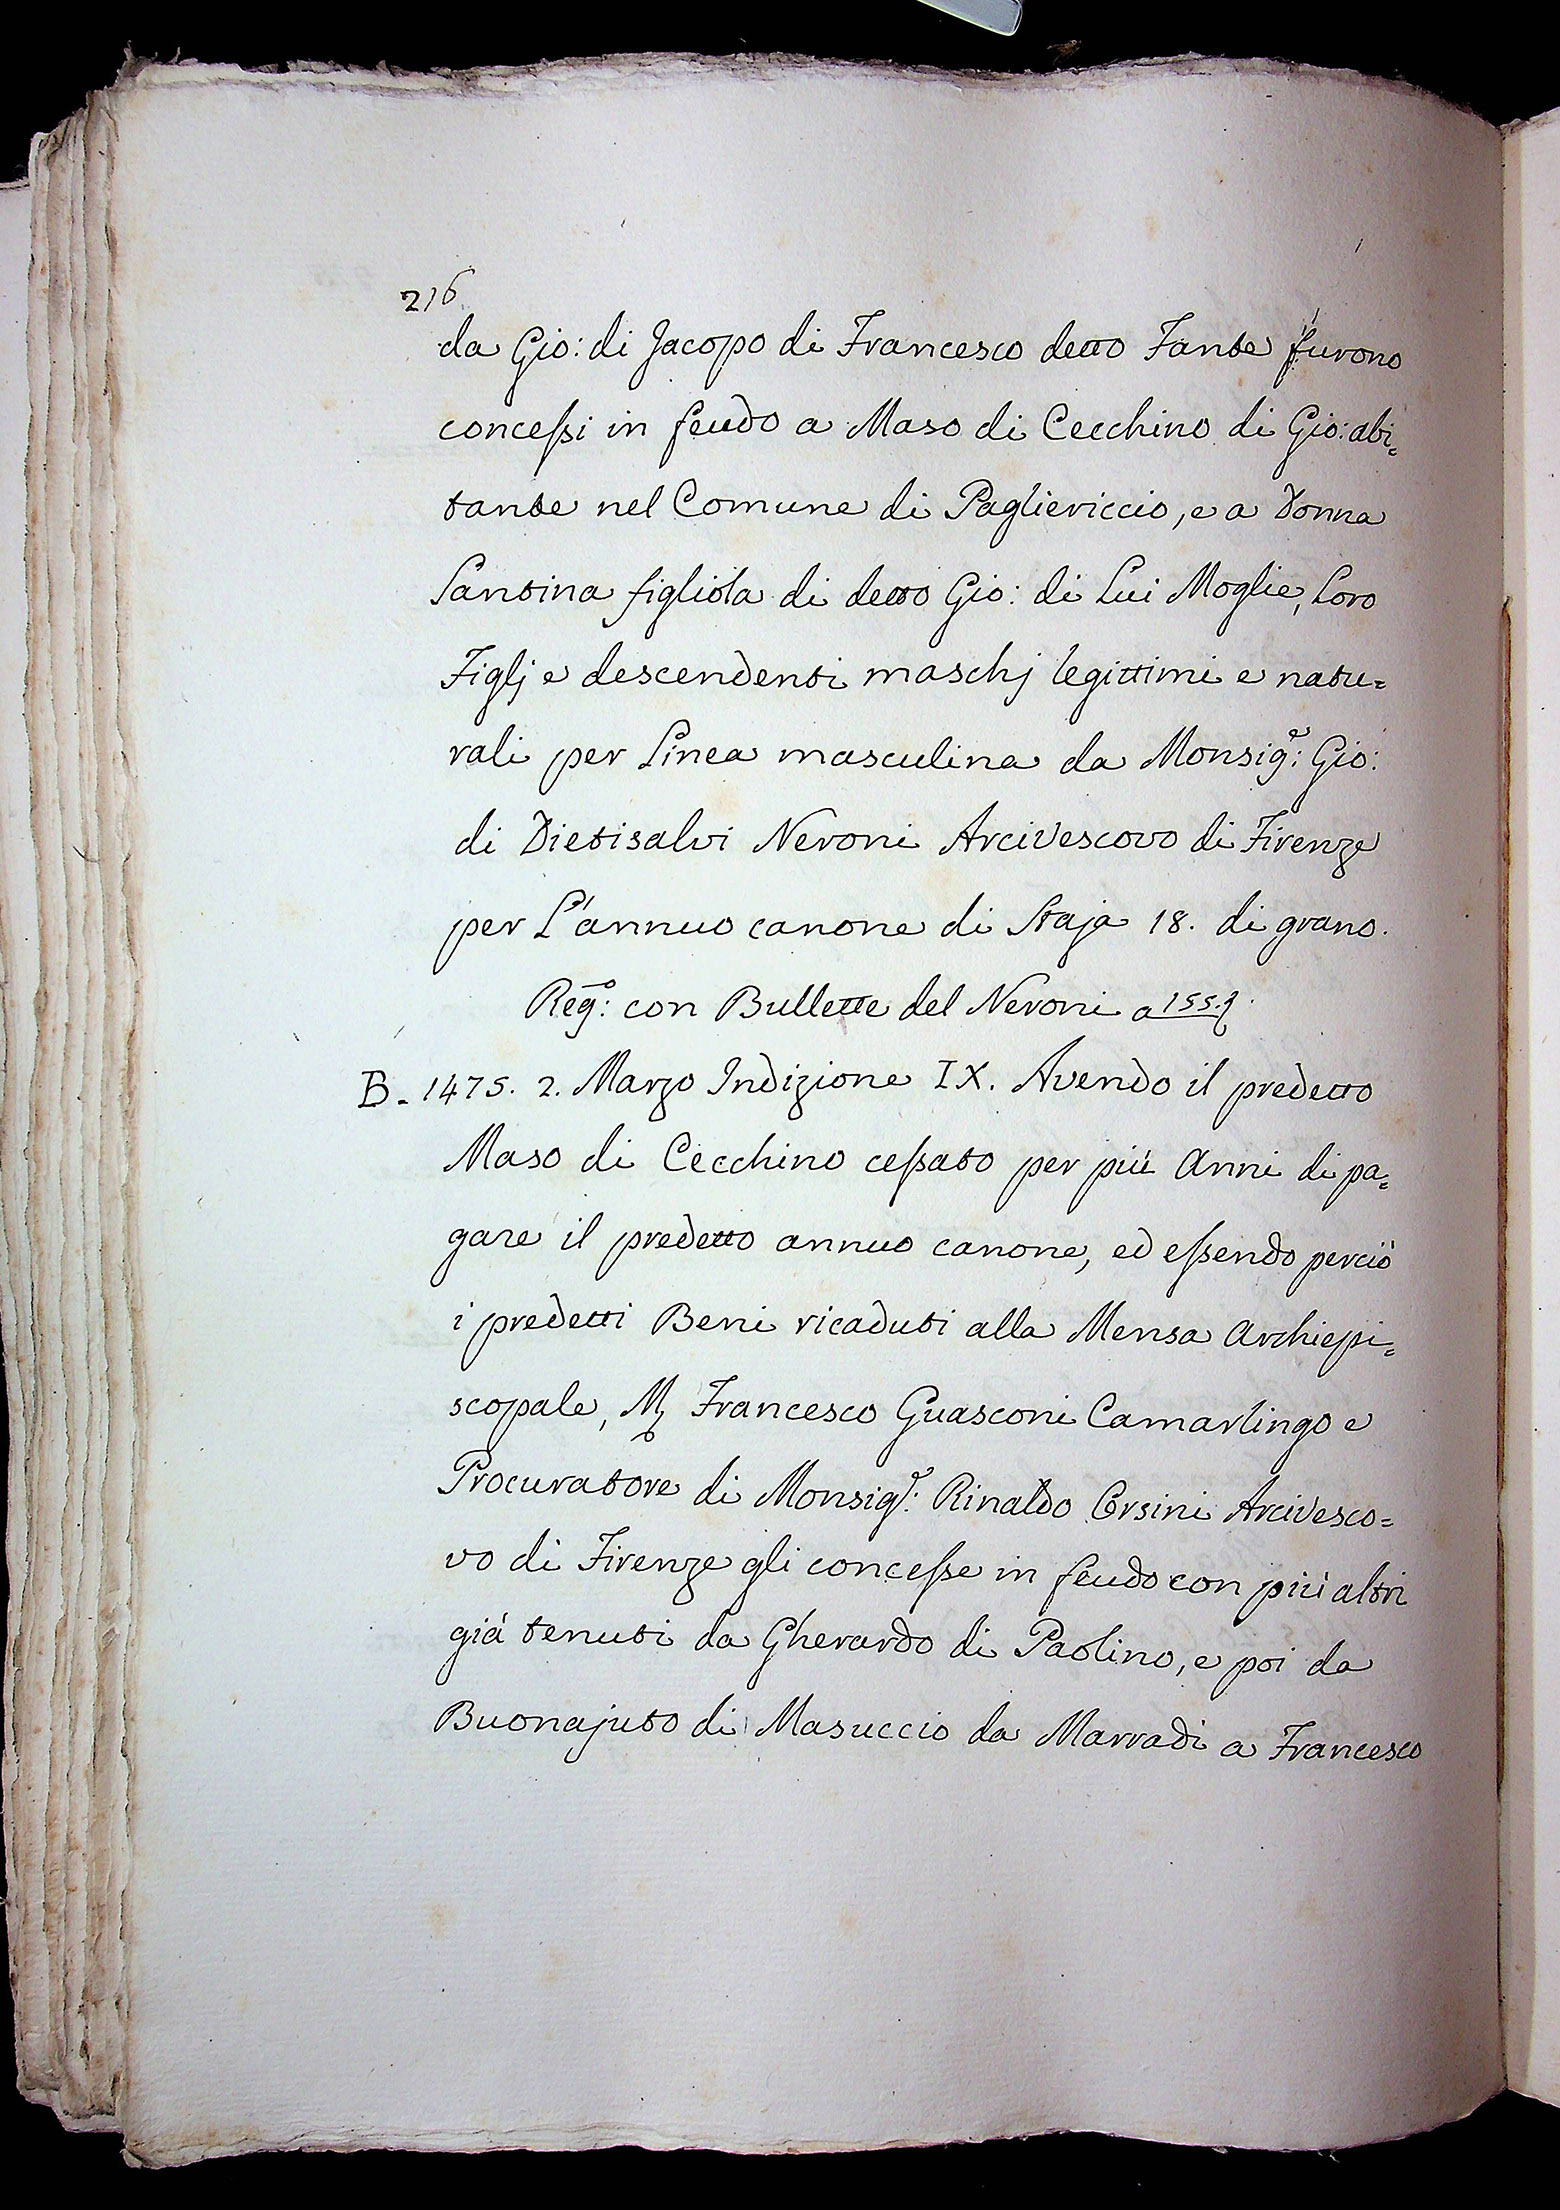 216
da Gio: di Jacopo di Francesco detto Fante furono
concessi in feudo a Maso di Cecchino di Gio: abi=
tante nel Comune di Pagliericcio, e a Donna
Santina figliola di detto Gio: di Lui Moglie, Loro
Figlj e descendenti maschj legittimi e natu=
rali per Linea masculina da Monsigᵉ: Gio:
di Dietisalvi Neroni Arcivescovo di Firenze
per L'annuo canone di Staja 18. di grano.
Regº: con Bullette del Neroni a 155.
B. 1475. 2. Marzo Indizione IX. Avendo il predetto
Maso di Cecchino cessato per più Anni di pa=
gare il predetto annuo canone, ed essendo perciò
i predetti Beni ricaduti alla Mensa Archiepi=
scopale, M Francesco Guasconi Camarlingo e
Procuratore di Monsigᵉ: Rinaldo Orsini Arcivesco=
vo di Firenze gli concesse in feudo con più altri
già tenuti da Gherardo di Paolino, e poi da
Buonajuto di Masuccio da Marradi a Francesco